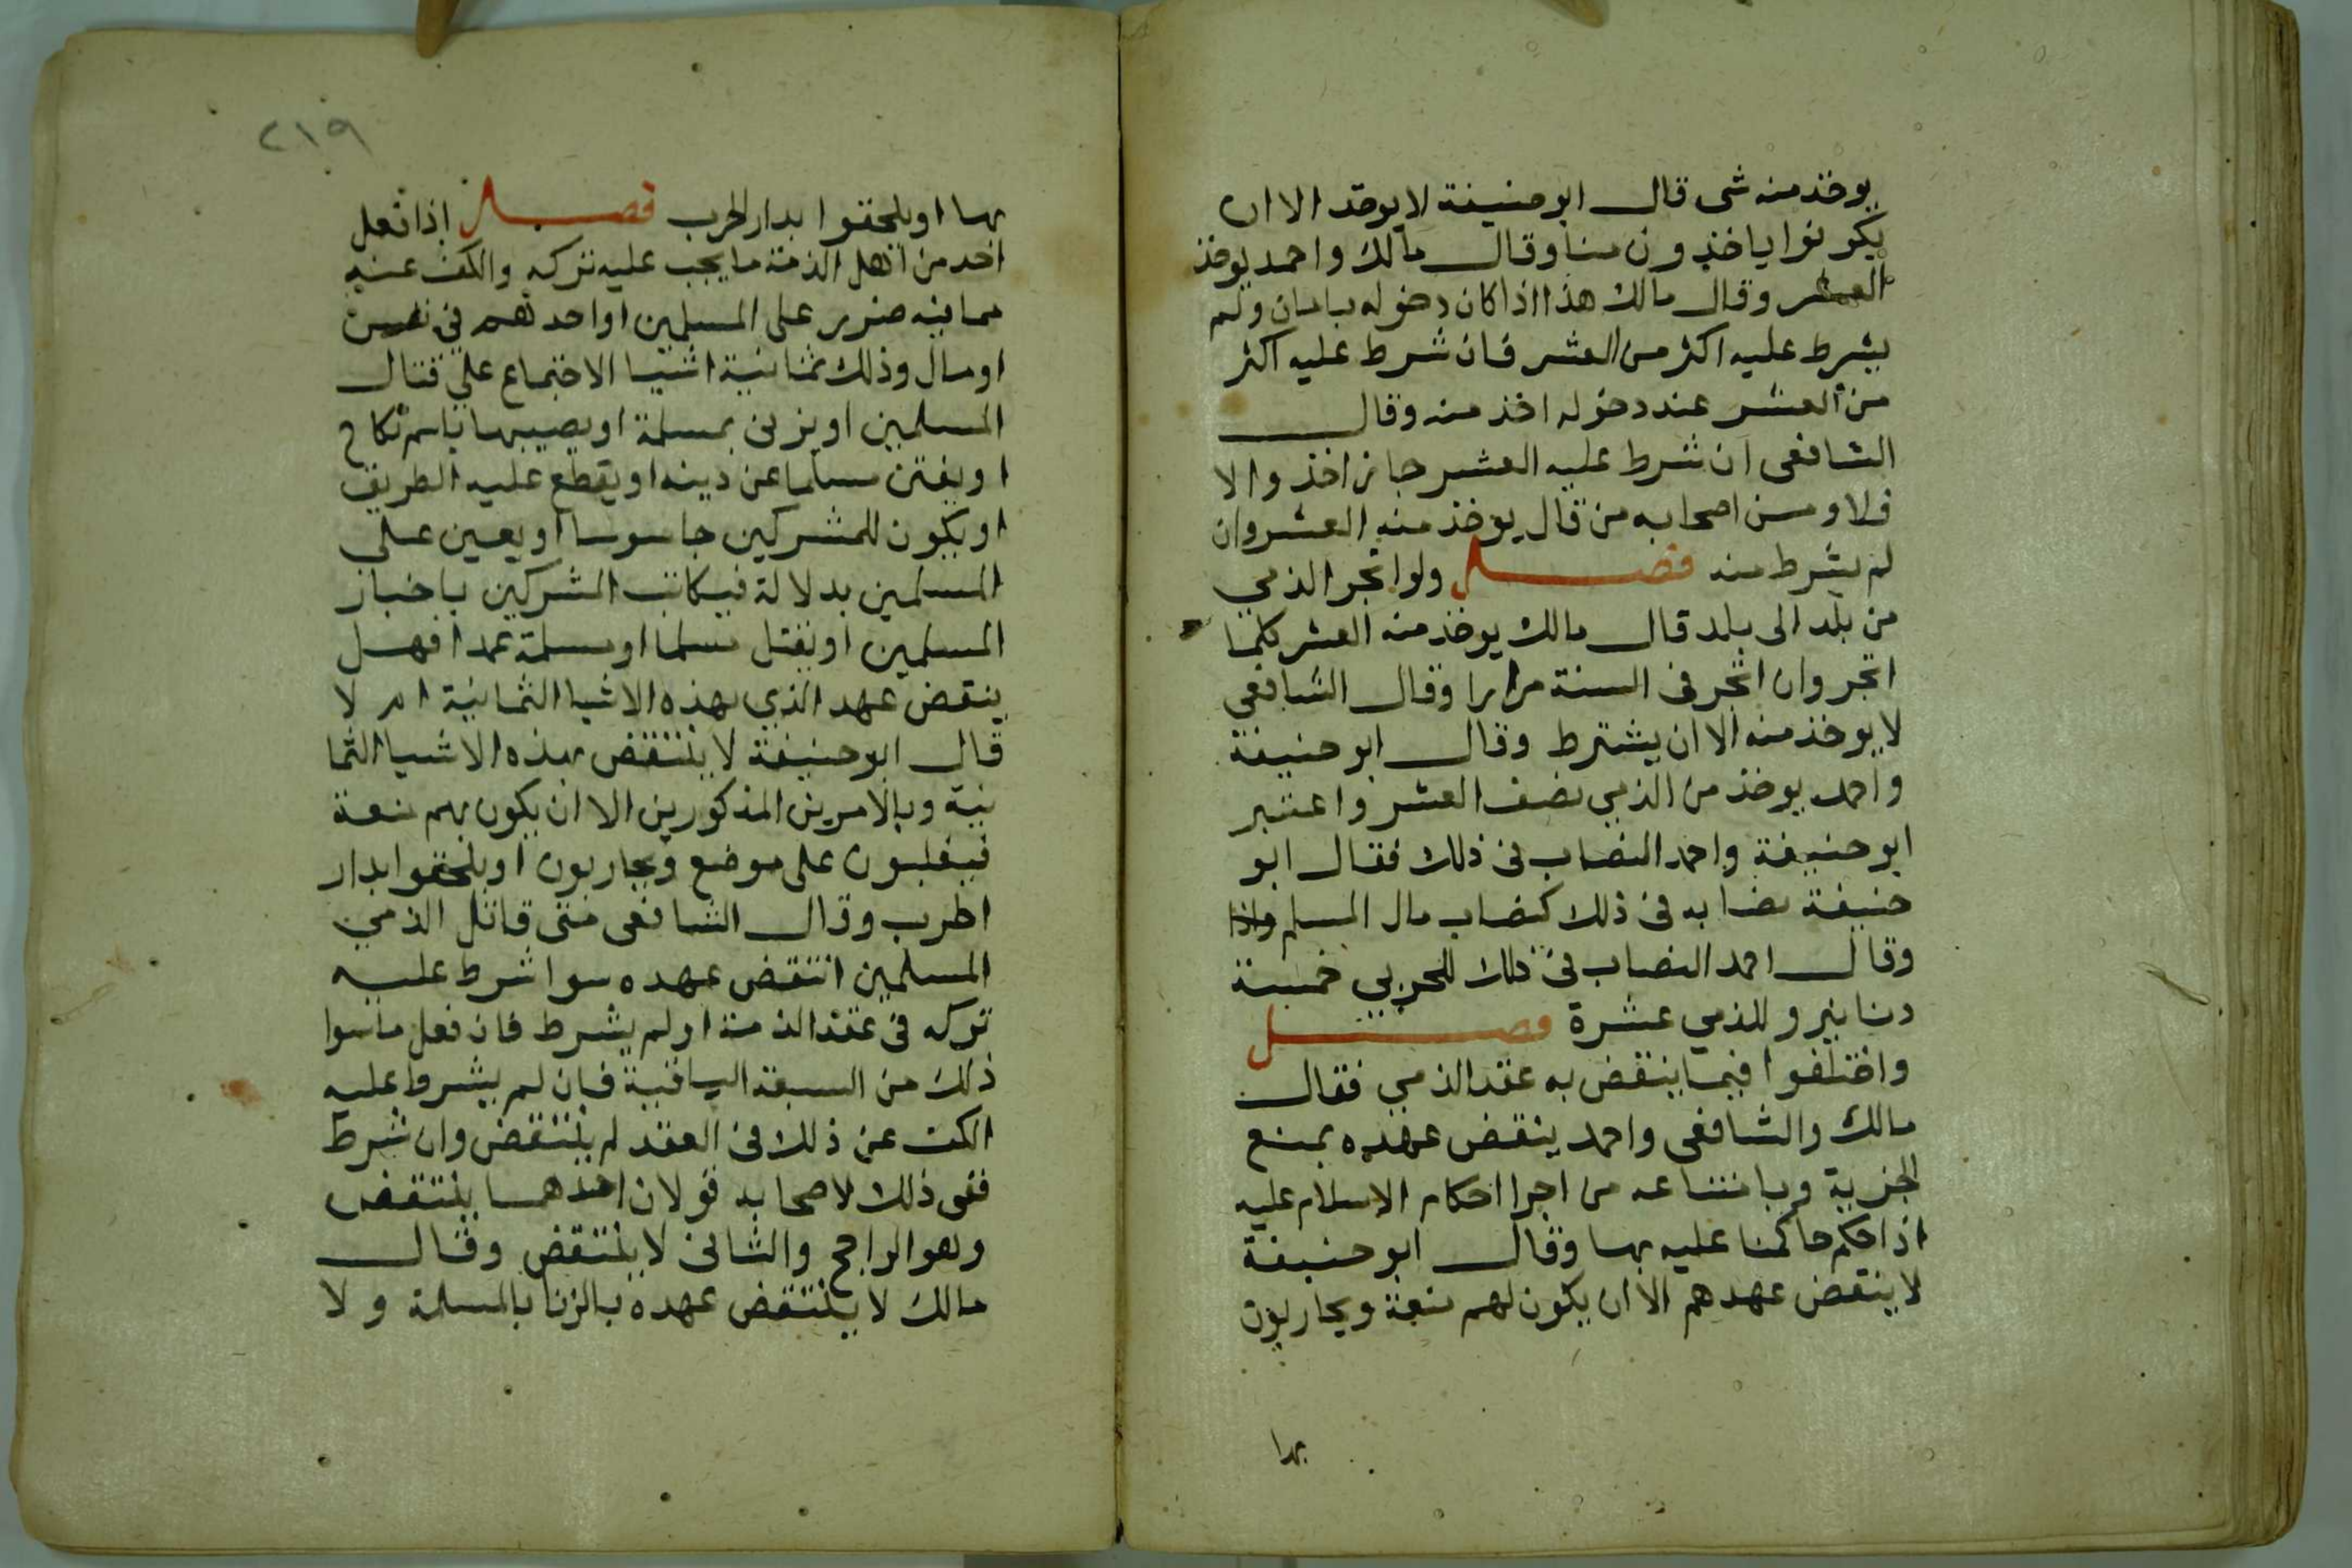 يوخذ منه شى قال ابو حنيفة لا يوخذ الا ان
يكونوا ياخذون منا وقال مالك واحمد يوخذ
العشر وقال مالك هذا اذا كان دخوله بامان ولم
يشرط عليه اكثر من العشر فان شرط عليه اكثر
من العشر عند دخوله اخذ منه وقال
الشافعى ان شرط عليه العشر جاز اخذ والا
فلا ومن اصحابه من قال يوخذ منه العشر وان
لم يشرط منه فصل ولو اتجر الذمي
من بلد الى بلد قال مالك يوخذ منه العشر كلما
اتجر وان اتجر فى السنة مرارا وقال الشافعي
لا يوخذ منه الا ان يشترط وقال ابو حنيفة
واحمد يوخذ من الذمي نصف العشر واعتبر
ابو حنيفة واحمد النصاب فى ذلك فقال ابو
حنيفة نصابه فى ذلك كنصاب مال المسلم واذا
وقال احمد النصاب فى ذلك للحربي خمسة
دنانير وللذمي عشرة فصل
واختلفوا فيما ينقض به عقد الذمي فقال
مالك والشافعى واحمد ينقض عهده بمنع
الجزية وبامتناعه من اجرا احكام الاسلام عليه
اذا حكم حاكمنا عليه بها وقال ابو حنيفة
لا ينتقض عهدهم الا ان يكون لهم منعة ويحاربون
بها
٢١٩
بها او يلحقوا بدار الحرب فصل اذا فعل
احد من اهل الذمة ما يجب عليه تركه والكف عنه
مما فيه ضرر على المسلمين او احدهم في نفس
او مال وذلك ثمانية اشيا الاجتماع علي قتال
المسلمين او يزنى بمسلمة او يصيبها باسم نكاح
او يفتن مسلما عن دينه او يقطع عليه الطريق
او يكون للمشركين جاسوسا او يعين على
المسلمين بدلالة فيكاتب المشركين باخبار
المسلمين او يقتل مسلما او مسلمة عمدا فهل
ينقض عهد الذي بهذه الاشيا الثمانية ام لا
قال ابو حنيفة لا ينتقض بهذه الاشيا الثما
نية وبالامرين المذكورين الا ان يكون بهم منعة
فيغلبون على موضع ويحاربون او يلحقوا بدار
الحرب وقال الشافعى متى قاتل الذمي
المسلمين انتقض عهده سوا شرط عليه
تركه فى عقد الذمة او لم يشرط فان فعل ما سوا
ذلك من السبعة الباقية فان لم يشرط عليه
الكف عن ذلك فى العقد لم ينتقض وان شرط
ففى ذلك لاصحابه قولان احدهما ينتقض
وهو الراجح والثانى لا ينتقض وقال
مالك لا ينتقض عهده بالزنا بالمسلمة ولا